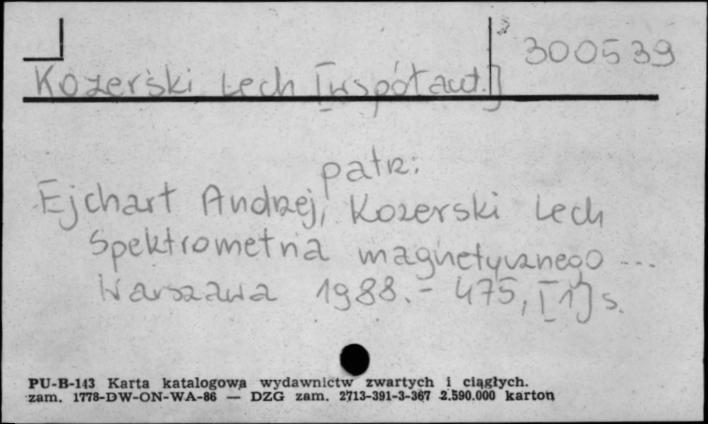 300539
Kozerski Lech [współaut.]
patrz:
Ejchart Andrzej, Kozerski Lech
Spektrometria magnetycznego ...
Warszawa 1988. - 475, [1] s.
PU-B-143 Karta katalogowa wydawnictw zwartych i ciągłych.
zam. 1778-DW-ON-WA-86 — DZG zam. 2713-391-3-367 2.590.000 karton